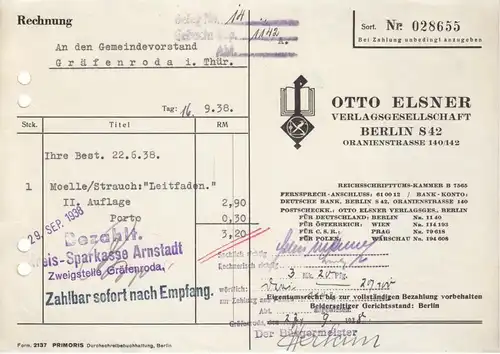 Rechnung
14
1142
An den Gemeindevorstand
Gräfenroda i. Thür.
Sort. Nr. 028655
Bei Zahlung unbedingt anzugeben
Tag: 16. 9.38.
OTTO ELSNER
VERLAGSGESELLSCHAFT
BERLIN S 42
ORANIENSTRASSE 140/142
Stck. Titel RM
Ihre Best. 22.6.38.
1 Moelle/Strauch:"Leitfaden."
II. Auflage 2,90
Porto 0,30
3,20
REICHSSCHRIFTTUMS-KAMMER B 7565
FERNSPRECH-ANSCHLUSS: 61 00 12 / BANK-KONTO:
DEUTSCHE BANK, BERLIN S 42, ORANIENSTRASSE 140
POSTSCHECKK.: OTTO ELSNER VERLAGSGES., BERLIN
FÜR DEUTSCHLAND: BERLIN Nr. 11 40
FÜR OESTERREICH: WIEN Nr. 114 193
FÜR C. S. R.: PRAG Nr. 79 618
FÜR POLEN: WARSCHAU Nr. 194 608
29. SEP. 1938
Bezahlt.
Kreis-Sparkasse Arnstadt
Zweigstelle Gräfenroda.
Zahlbar sofort nach Empfang.
Sachlich richtig
Rechnerisch richtig
3 RM 20 Rpf
wörtlich:
Eigentumsrecht bis zur völlständigen Bezahlung vorbehalten
Beiderseitiger Gerichtsstand: Berlin
Gräfenroda, den
Der Bürgermeister
Form. 2137 PRIMORIS Durchschreibebuchhaltung, Berlin